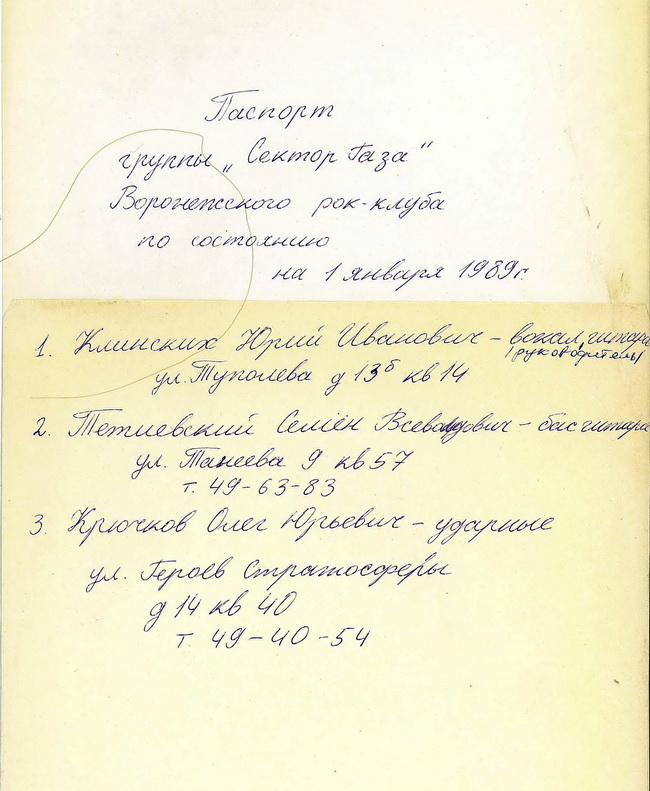 Паспорт
группы „Сектор Газа"
Воронежского рок-клуба
по состоянию
на 1 января 1989г.
1. Клинских Юрий Иванович – вокал, гитара
/руководитель/
ул. Туполева д 13б кв 14
2. Тетиевский Семён Всеволодович – бас гитара
ул. Танеева 9 кв 57
т. 49-63-83
3. Крючков Олег Юрьевич – ударные
ул. Героев Стратосферы
д 14 кв 40
т. 49-40-54